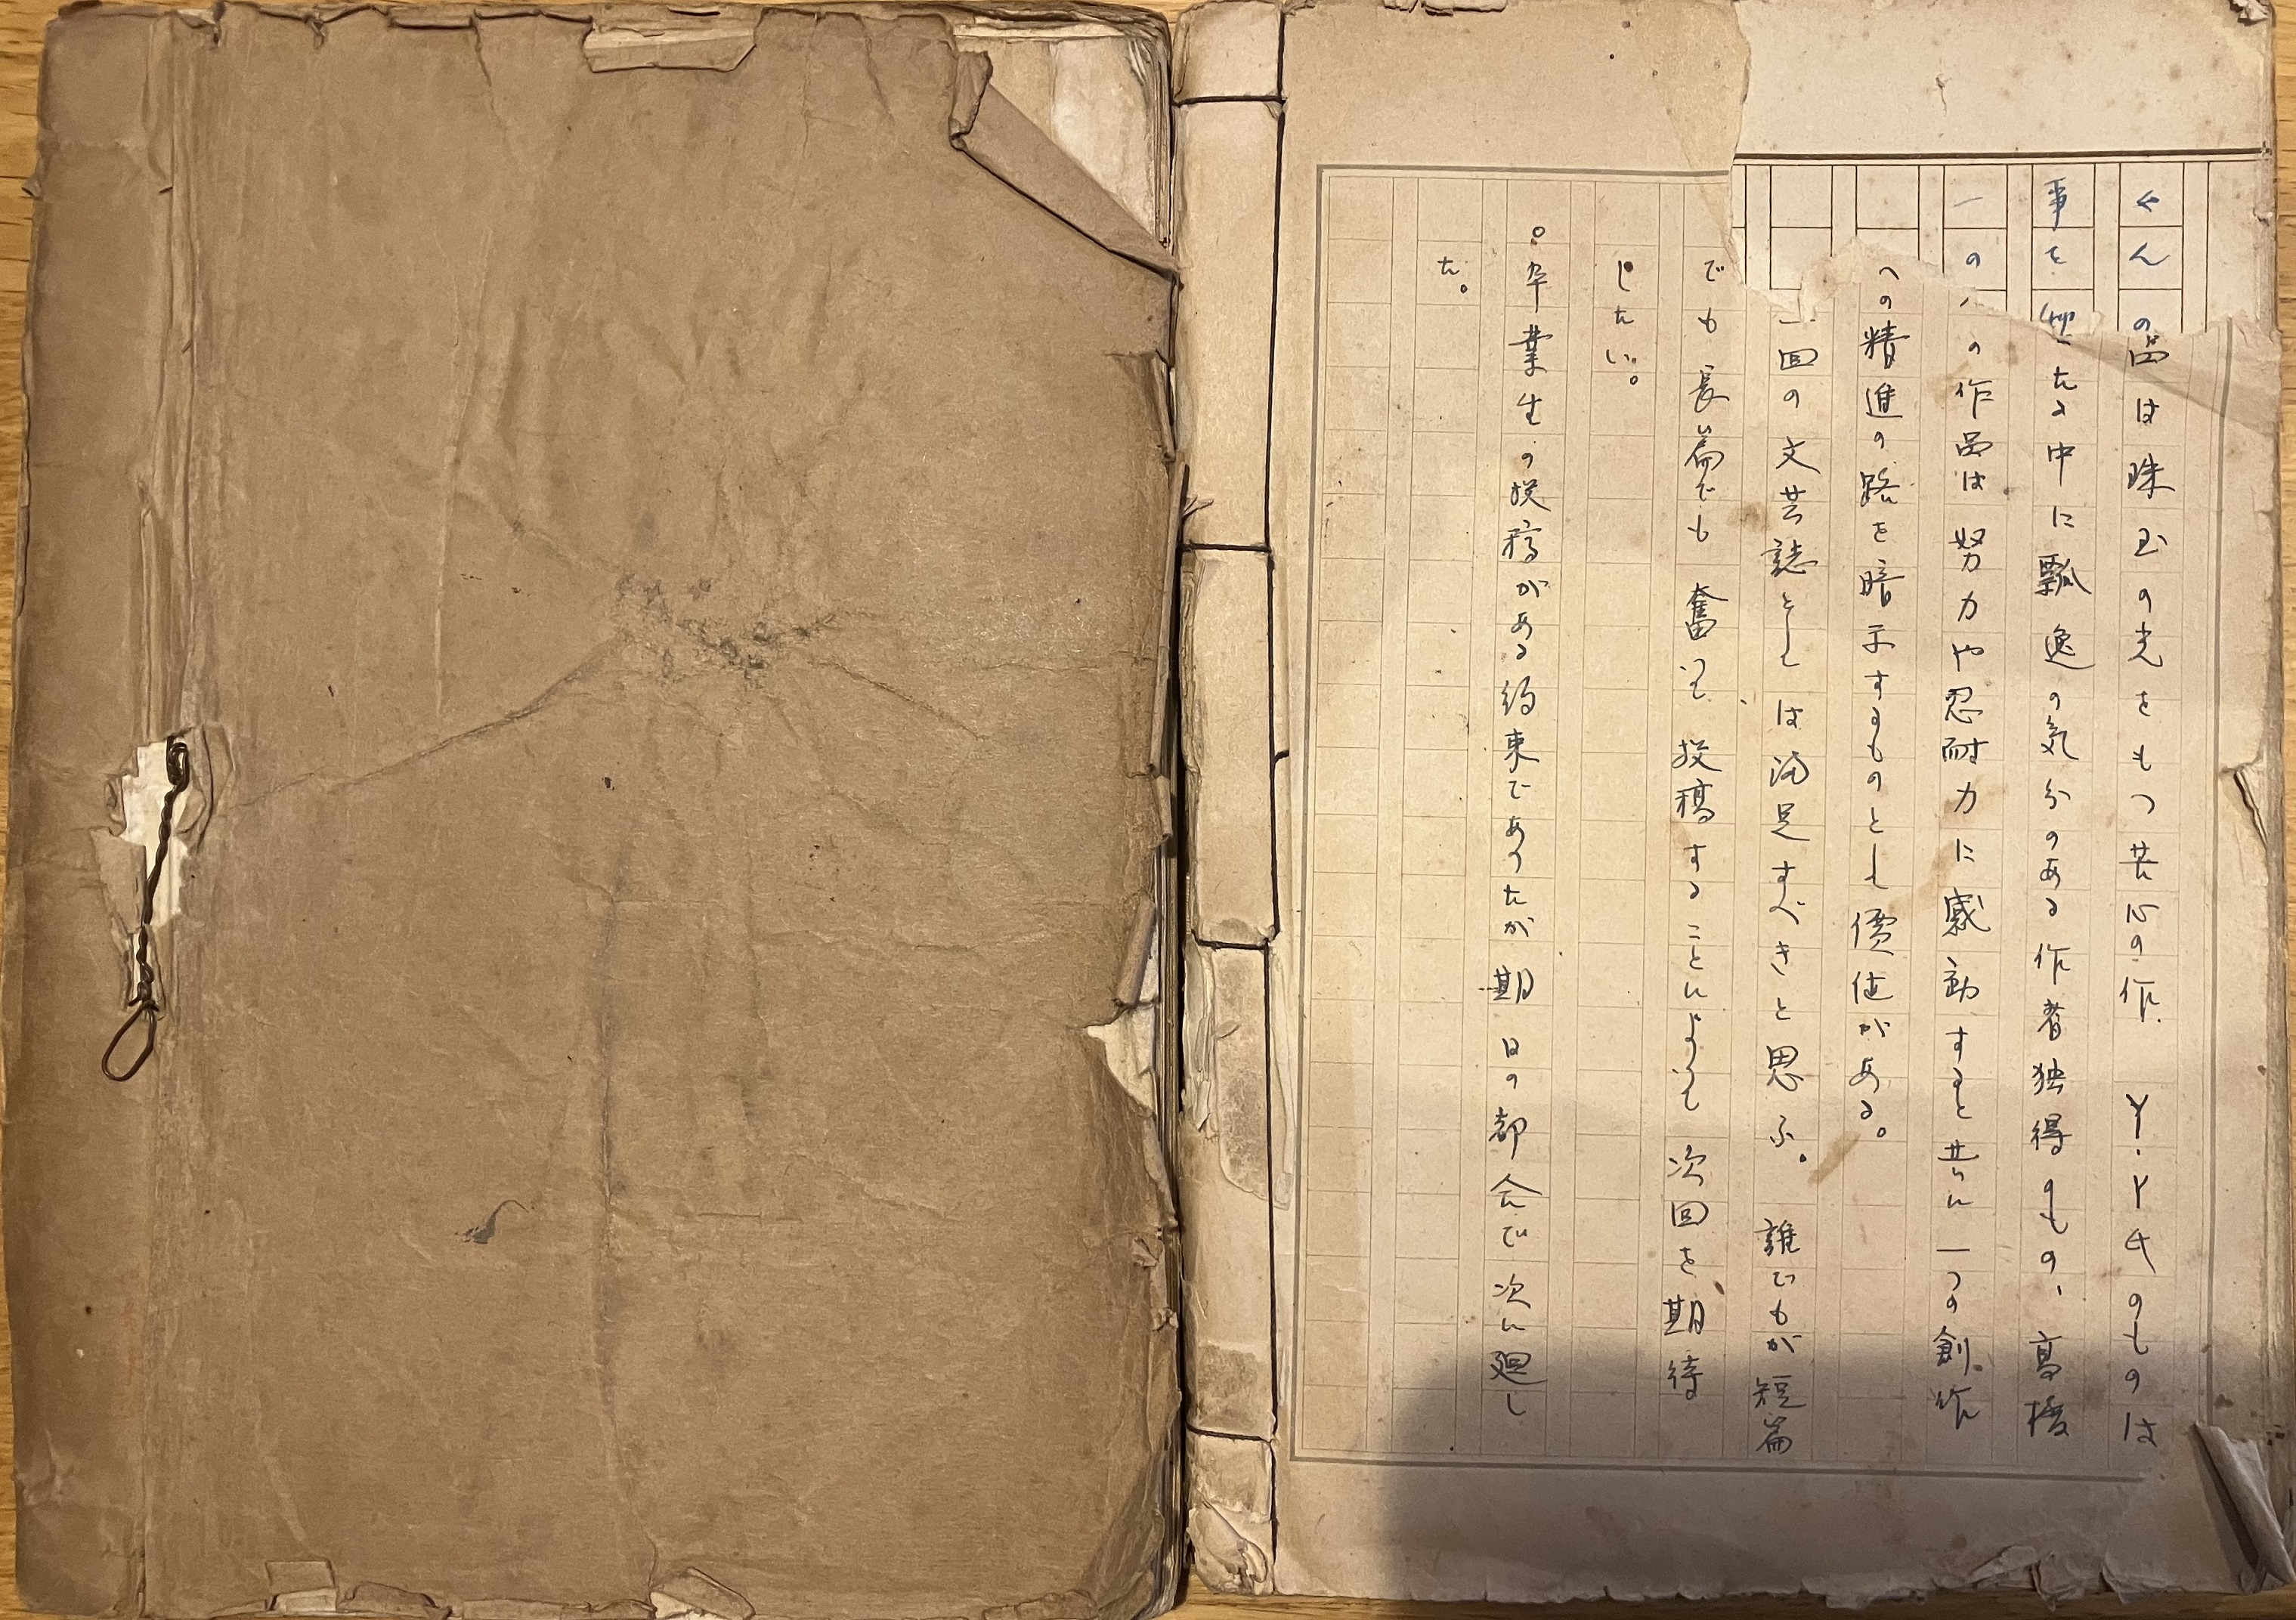 品は珠玉の光をもつ芸心の作 Y.Y氏のものは
事を 中に瓢逸の気分のある作者独得のもの、高橋
一の の作品は努力や忍耐力に感動すると共に一つの創作
への精進の路を暗示するものとして價値がある。
一回の文芸誌としては満足すべきと思ふ。 誰でもが短篇
でも長篇でも奮って投稿することによって次回を期待
したい。
。卒業生の投稿がある約束であったが期日の都合で次に廻し
た。